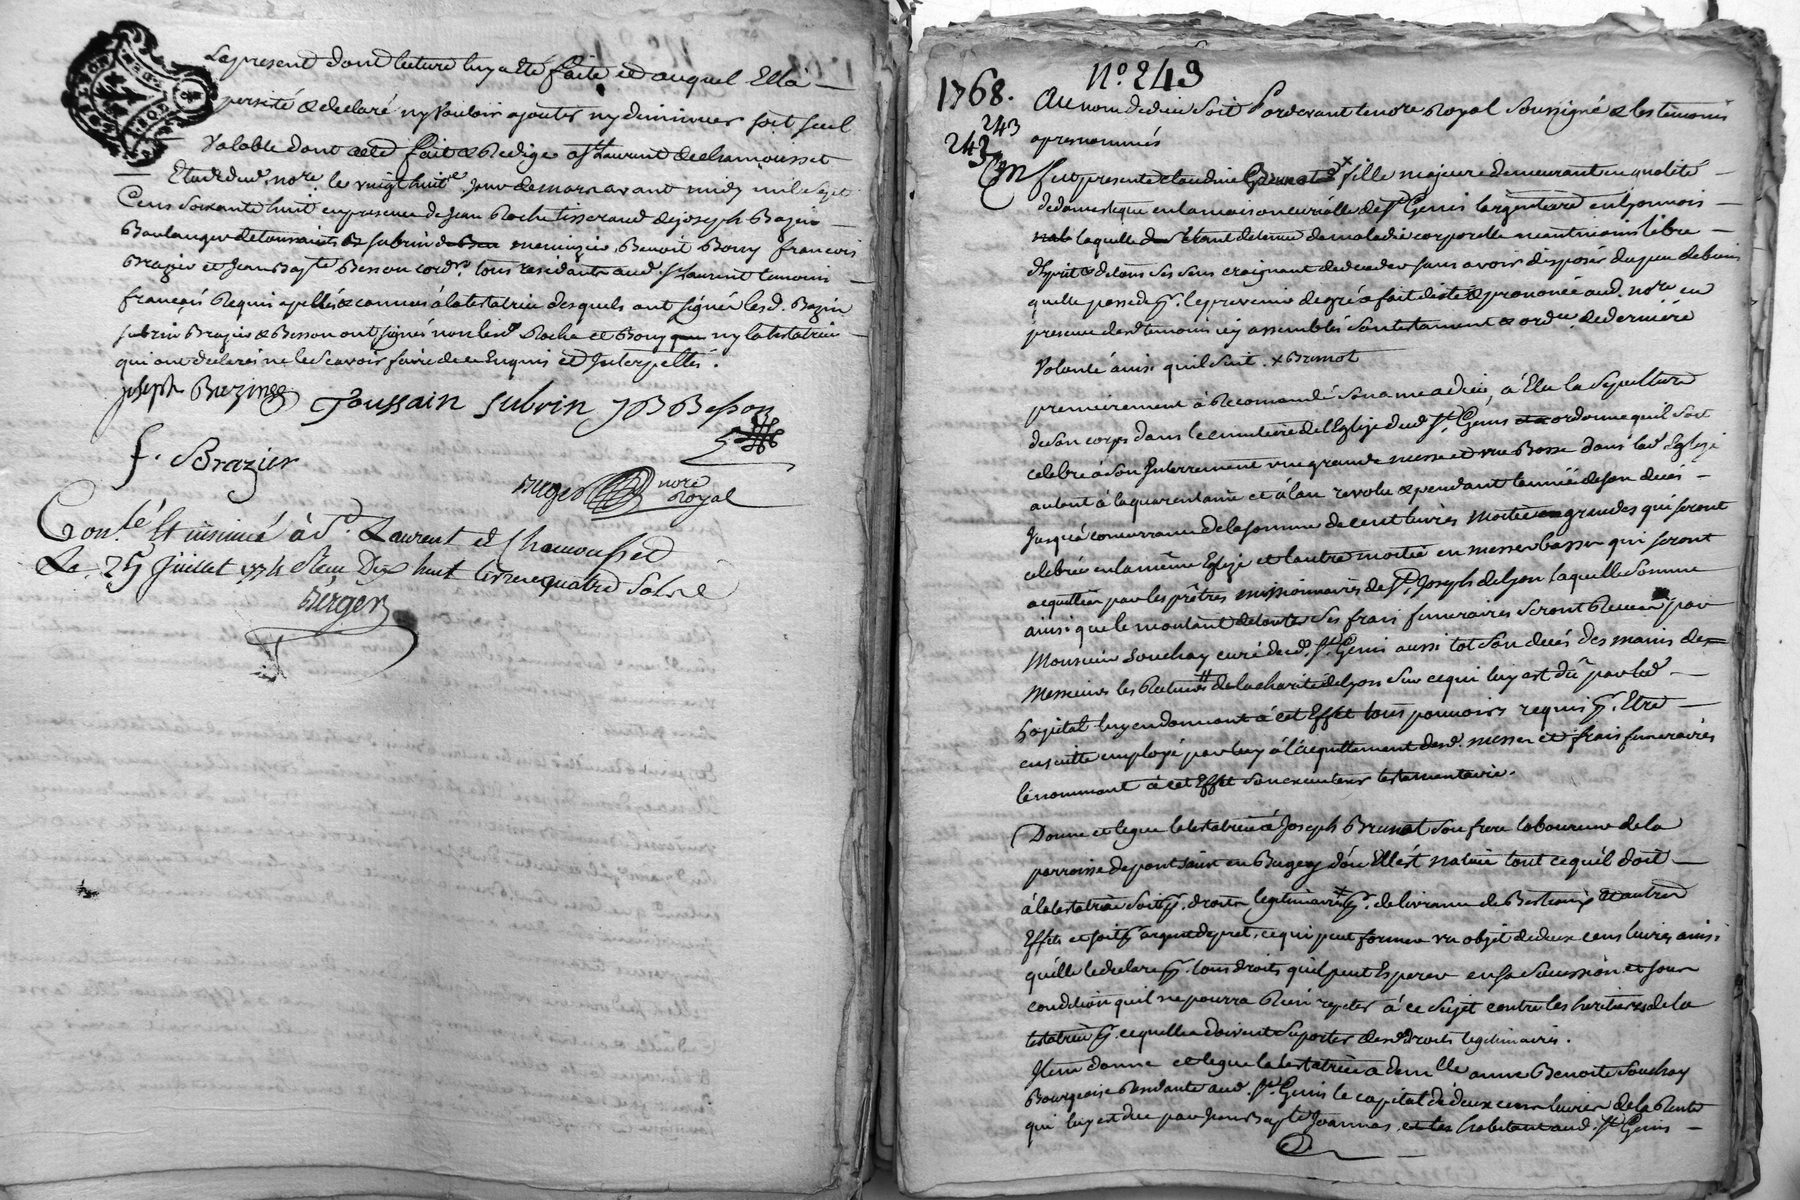 Le present dont lecture luy a eté faite et auquel Ella
persisté & declaré ny vouloir ajouter ny diminuer soit seul
Valable dont acte fait & Redigé a St Laurent de chamousset
Etude dud. nore. le vingt huite. jour de mars avant midy mil sept
Cens soixante huit en presence de Jean Roche tisserand de joseph Bazin
Boulanger de toussaints subrin menuizier Benoit Bony francois
Brazier et Jean Bapte Besson cordr. tous residants aud. St Laurent temoins
francais Requis apellés & connus à la testatrice desquels ont signés lesd. Bazin
subrin Brazier & Besson ont signés non lesd. Roche et Bony ny la testatrice
qui ont declarés ne le scavoir faire de ce Enquis et Interpellés.
joseph Bazin
Toussain subrin JB Besson
f. Brazier
Berger nore Royal
Conlé. Et insinué à St. Laurent de Chamousset
Le 25 Juillet 1774 Reçu Dix huit livres quatre sols
Berger
1768. No. 243
243
243
Au nom de dieu soit Pardevant le nore Royal soussigné & les temoins
apres nommés
fut presente claudine Brunat fille majeure demeurant en qualité
de domestique en la maison curialle de St Genis largentiere en Lyonnois
laquelle Etant detenue de maladie corporelle neantmoins libre
d'Esprit & de tous ses sens craignant de deceder sans avoir disposés du peu de biens
quelle possede pr. le prevenir de gré a fait dicté & prononcé aud. nore en
presence desd. temoins icy assemblés son testament & ordce. de derniere
Volonté ainsi quil suit. x Brunot
premierement à Recomandé son ame a dieu, à Elu la sepulture
de son corps dans le cimetiere de l'Eglize dud. St. Genis ordonne quil soit
celebré à son Enterrement une grande messe et une Basse dans lad. Eglize
autant à la quarantaine et à l'an revolu & pendant lannée de son decés
Jusquà concurrance de la somme de cent livres moitié grandes qui seront
celebrées en la même Eglize et lautre moitié en messes basses qui seront
acquittées par les prêtres missionnaires de St. Joseph de Lyon laquelle somme
ainsi que le montant de toutes ses frais funeraires seront Reçeu par
Monsieur Souchay curé dud. St. Genis aussi tot son decés des mains de
Messieurs les Recteurs de la charité de Lyon sur ce qui luy est dû par led.
hopital luy en donnant à cet Effet tous pouvoirs requis pr. Etre
ensuitte employé par luy à l'acquittement desd. messes et frais funeraires
le nommant à cet Effet son executeur testamentaire.
Donne et legue la testatrice à Joseph Brunat son frere laboureur de la
parroisse de pont dain en Bugey d'où Elle est native tout ce quil doit
à la testatrice soit pr. droits legitimaires pr. delivrance de Bestiaux et autres
Effets et soit pr argent de pret, ce qui peut former un objet de deux cens livres ainsi
quelle le declare pr. tous droits quil peut Esperer en sa succession et sous
condition quil ne pourra Rien repeter à ce sujet contre les heritiers de la
testatrice pr. ce quelle doivent suporter desd. Droits legitimaires.
Item donne et legue la testatrice a demlle anne Benoite Souchay
Bourgeoise Residante aud. St. Genis le capital de deux cens livres de la Rente
qui luy est due par Jean Bapte Joannas, et les habitant aud. St Genis